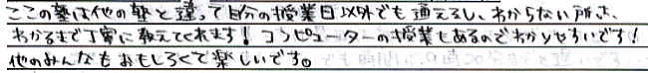 ここの塾は他の塾と違って自分の授業日以外でも通えるし、わからない所は、
わかるまで丁寧に教えてくれます！コンピューターの授業もあるのでわかりやすいです！
他のみんなもおもしろくて楽しいです。